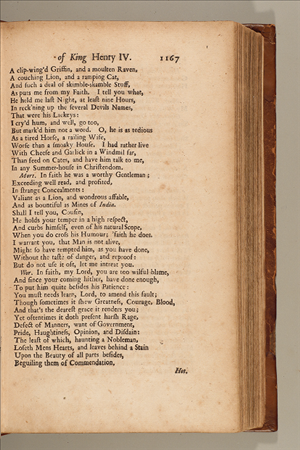 of King Henry IV. 1167
A clip-wing'd Griffin, and a moulten Raven,
A couching Lion, and a ramping Cat,
And such a deal of skimble-skamble Stuff,
As puts me from my Faith. I tell you what,
He held me last Night, at least nine Hours,
In reck'ning up the several Devils Names,
That were his Lackeys:
I cry'd hum, and well, go too,
But mark'd him not a word. O, he is as tedious
As a tired Horse, a railing Wife,
Worse than a smoaky House. I had rather live
With Cheese and Garlick in a Windmil far,
Than feed on Cates, and have him talk to me,
In any Summer-house in Christendom.
Mort. In faith he was a worthy Gentleman;
Exceeding well read, and profited,
In strange Concealments:
Valiant as a Lion, and wondrous affable,
And as bountiful as Mines of India.
Shall I tell you, Cousin,
He holds your temper in a high respect,
And curbs himself, even of his natural Scope,
When you do cross his Humour; 'faith he does.
I warrant you, that Man is not alive,
Might so have tempted him, as you have done,
Without the taste of danger, and reproof:
But do not use it oft, let me intreat you.
Wor. In faith, my Lord, you are too wilful blame,
And since your coming hither, have done enough,
To put him quite besides his Patience:
You must needs learn, Lord, to amend this fault;
Though sometimes it shew Greatness, Courage, Blood,
And that's the dearest grace it renders you;
Yet oftentimes it doth present harsh Rage,
Defect of Manners, want of Government,
Pride, Haughtiness, Opinion, and Disdain:
The least of which, haunting a Nobleman,
Loseth Mens Hearts, and leaves behind a Stain
Upon the Beauty of all parts besides,
Beguiling them of Commendation.
Hot.